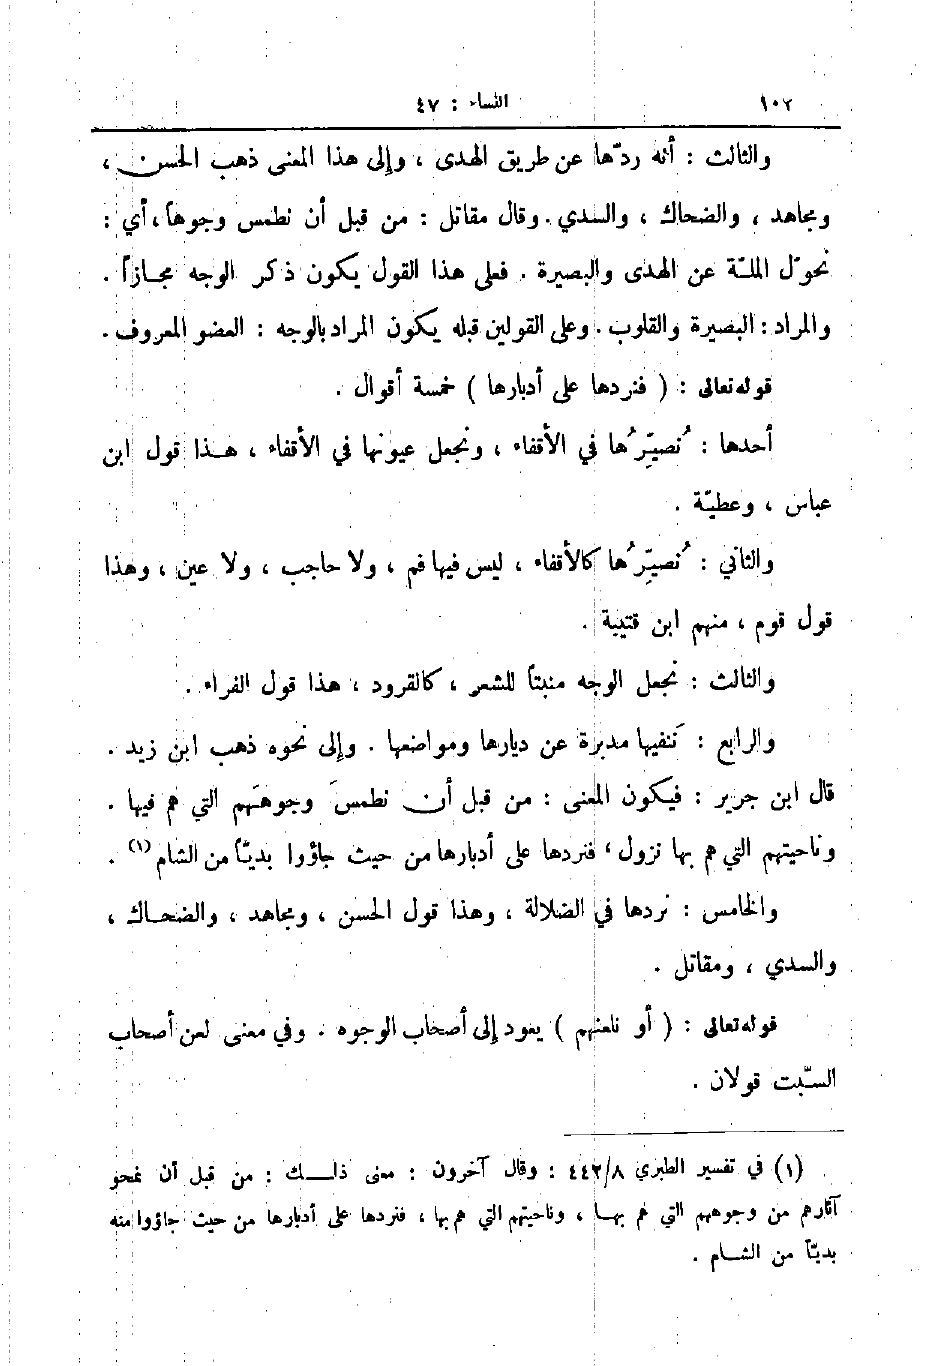 ١٠٢ النساء : ٤٧
والثالث : أنه ردّها عن طريق الهدى ، وإلى هذا المعنى ذهب الحسن ،
ومجاهد ، والضحاك ، والسدي . وقال مقاتل : من قبل أن نطمس وجوهاً ، أي :
نحوّل الملّة عن الهدى والبصيرة . فعلى هذا القول يكون ذكر الوجه مجازاً .
والمراد : البصيرة والقلوب . وعلى القولين قبله يكون المراد بالوجه : العضو المعروف .
قوله تعالى : ( فنردها على أدبارها ) خمسة أقوال .
أحدها : نُصيِّرُها في الأقفاء ، ونجعل عيونها في الأقفاء ، هذا قول ابن
عباس ، وعطيّة .
والثاني : نُصيِّرُها كالأقفاء ، ليس فيها فم ، ولا حاجب ، ولا عين ، وهذا
قول قوم ، منهم ابن قتيبة .
والثالث : نجعل الوجه منبتاً للشعر ، كالقرود ، هذا قول الفراء .
والرابع : نَنفيها مدبرة عن ديارها ومواضعها . وإلى نحوه ذهب ابن زيد .
قال ابن جرير : فيكون المعنى : من قبل أن نطمسَ وجوههَم التي هم فيها .
وناحيتهم التي هم بها نزول ، فنردها على أدبارها من حيث جاؤوا بديّاً من الشام (١) .
والخامس : نردها في الضلالة ، وهذا قول الحسن ، ومجاهد ، والضحاك ،
والسدي ، ومقاتل .
قوله تعالى : ( أو نلعنهم ) يعود إلى أصحاب الوجوه . وفي معنى لعن أصحاب
السّبت قولان .
(١) في تفسير الطبري ٤٤٢/٨ : وقال آخرون : معنى ذلك : من قبل أن نمحو
آثارهم من وجوههم التي هم بها ، وناحيتهم التي هم بها ، فنردها على أدبارها من حيث جاؤوا منه
بديّاً من الشام .